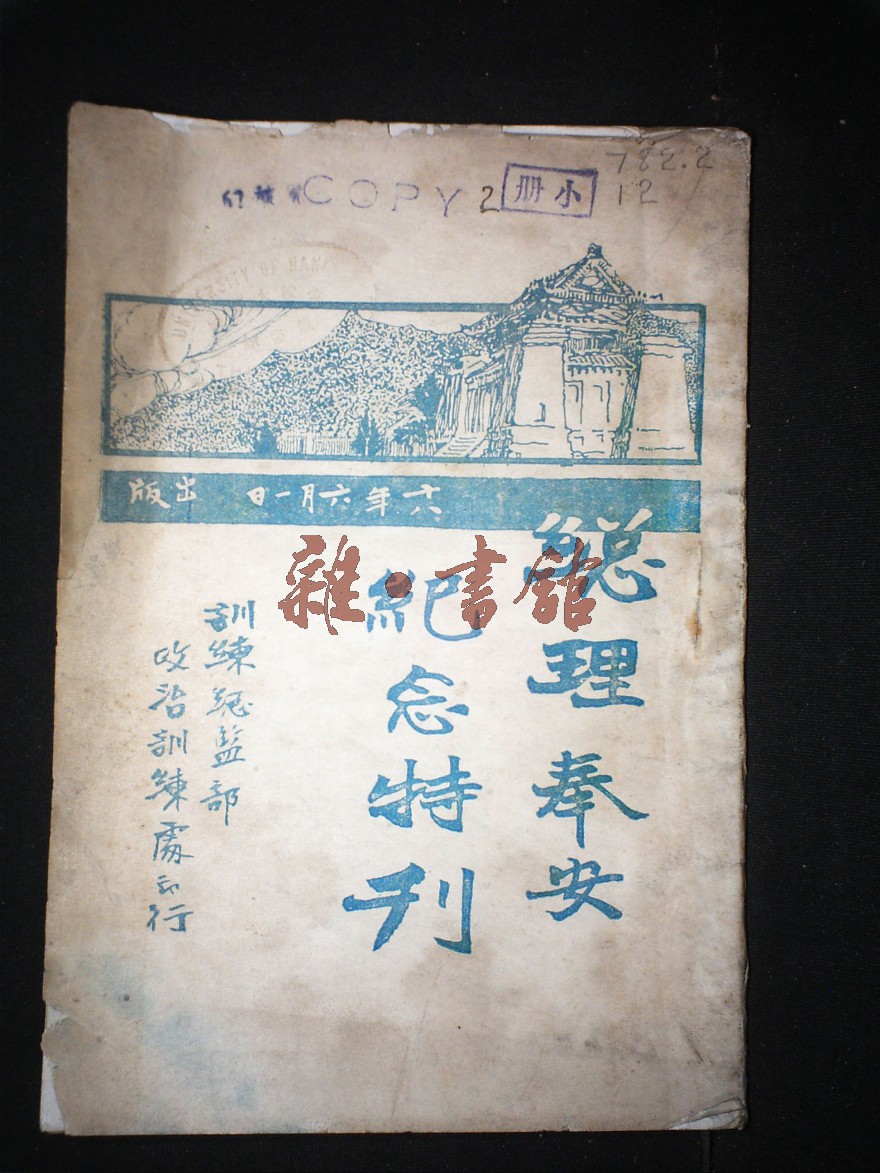 782.2
12
COPY 2
小冊
UNIVERSITY OF NANK
十八年六月一日 出版
雜·書館
總理奉安
紀念特刊
訓練總監部
政治訓練處印行